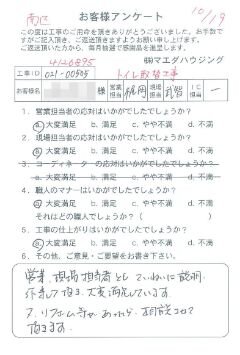 南区
お客様アンケート
10/19
この度は工事のご用命を頂きありがとうございました。お手数で
すがご記入頂き、ご返送頂きますようお願い申し上げます。
ご返送頂いた方から、毎月抽選で感謝品を進呈します。
㈱マエダハウジング
工事ID 021-00505 トイレ取替工事
お客様名 様 営業担当 現場担当 IC担当 ー
1. 営業担当者の応対はいかがでしたでしょうか?
a.大変満足 b.満足 c.やや不満 d.不満
2. 現場担当者の応対はいかがでしたでしょうか?
a.大変満足 b.満足 c.やや不満 d.不満
3. コーディネーターの応対はいかがでしたでしょうか?
a.大変満足 b.満足 c.やや不満 d.不満
4. 職人のマナーはいかがでしたでしょうか?
a.大変満足 b.満足 c.やや不満 d.不満
それはどの職人でしょうか?( )
5. 工事の仕上がりはいかがでしたでしょうか?
a.大変満足 b.満足 c.やや不満 d.不満
6. その他、ご意見・ご要望をお書き下さい。
営業、現場担当者として、ていねいに説明、
頂き、大変満足しています。
又、リフォーム等があれば、相談させて
頂きます。